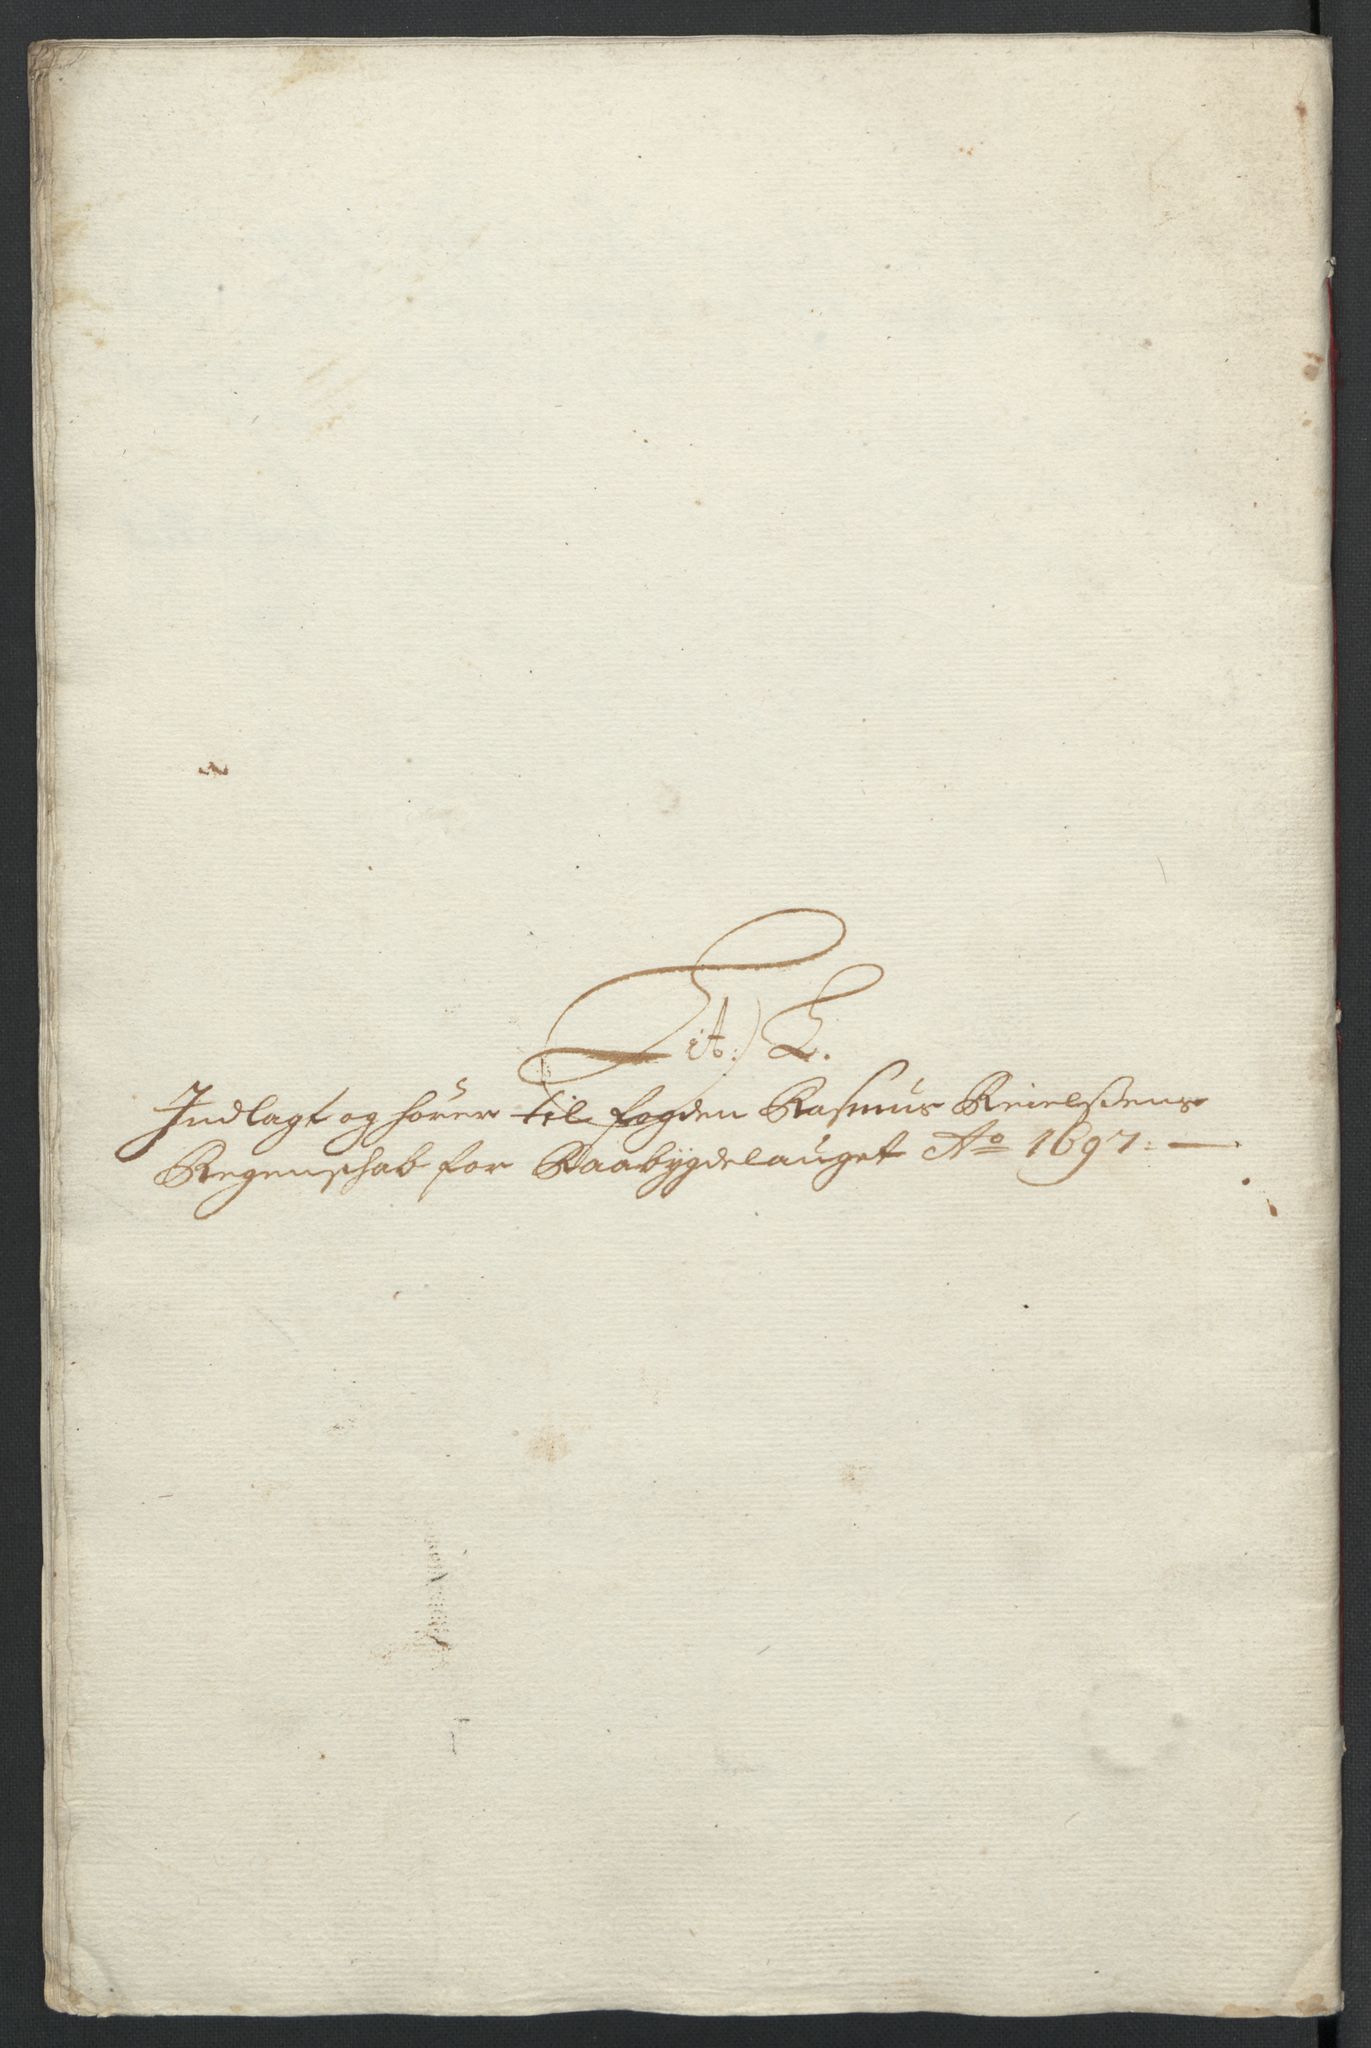 Lit:) E.
Indlagt og hører til fogden Rasmus Reielsens
Regenschab for Raabygdelauget Ao 1697: